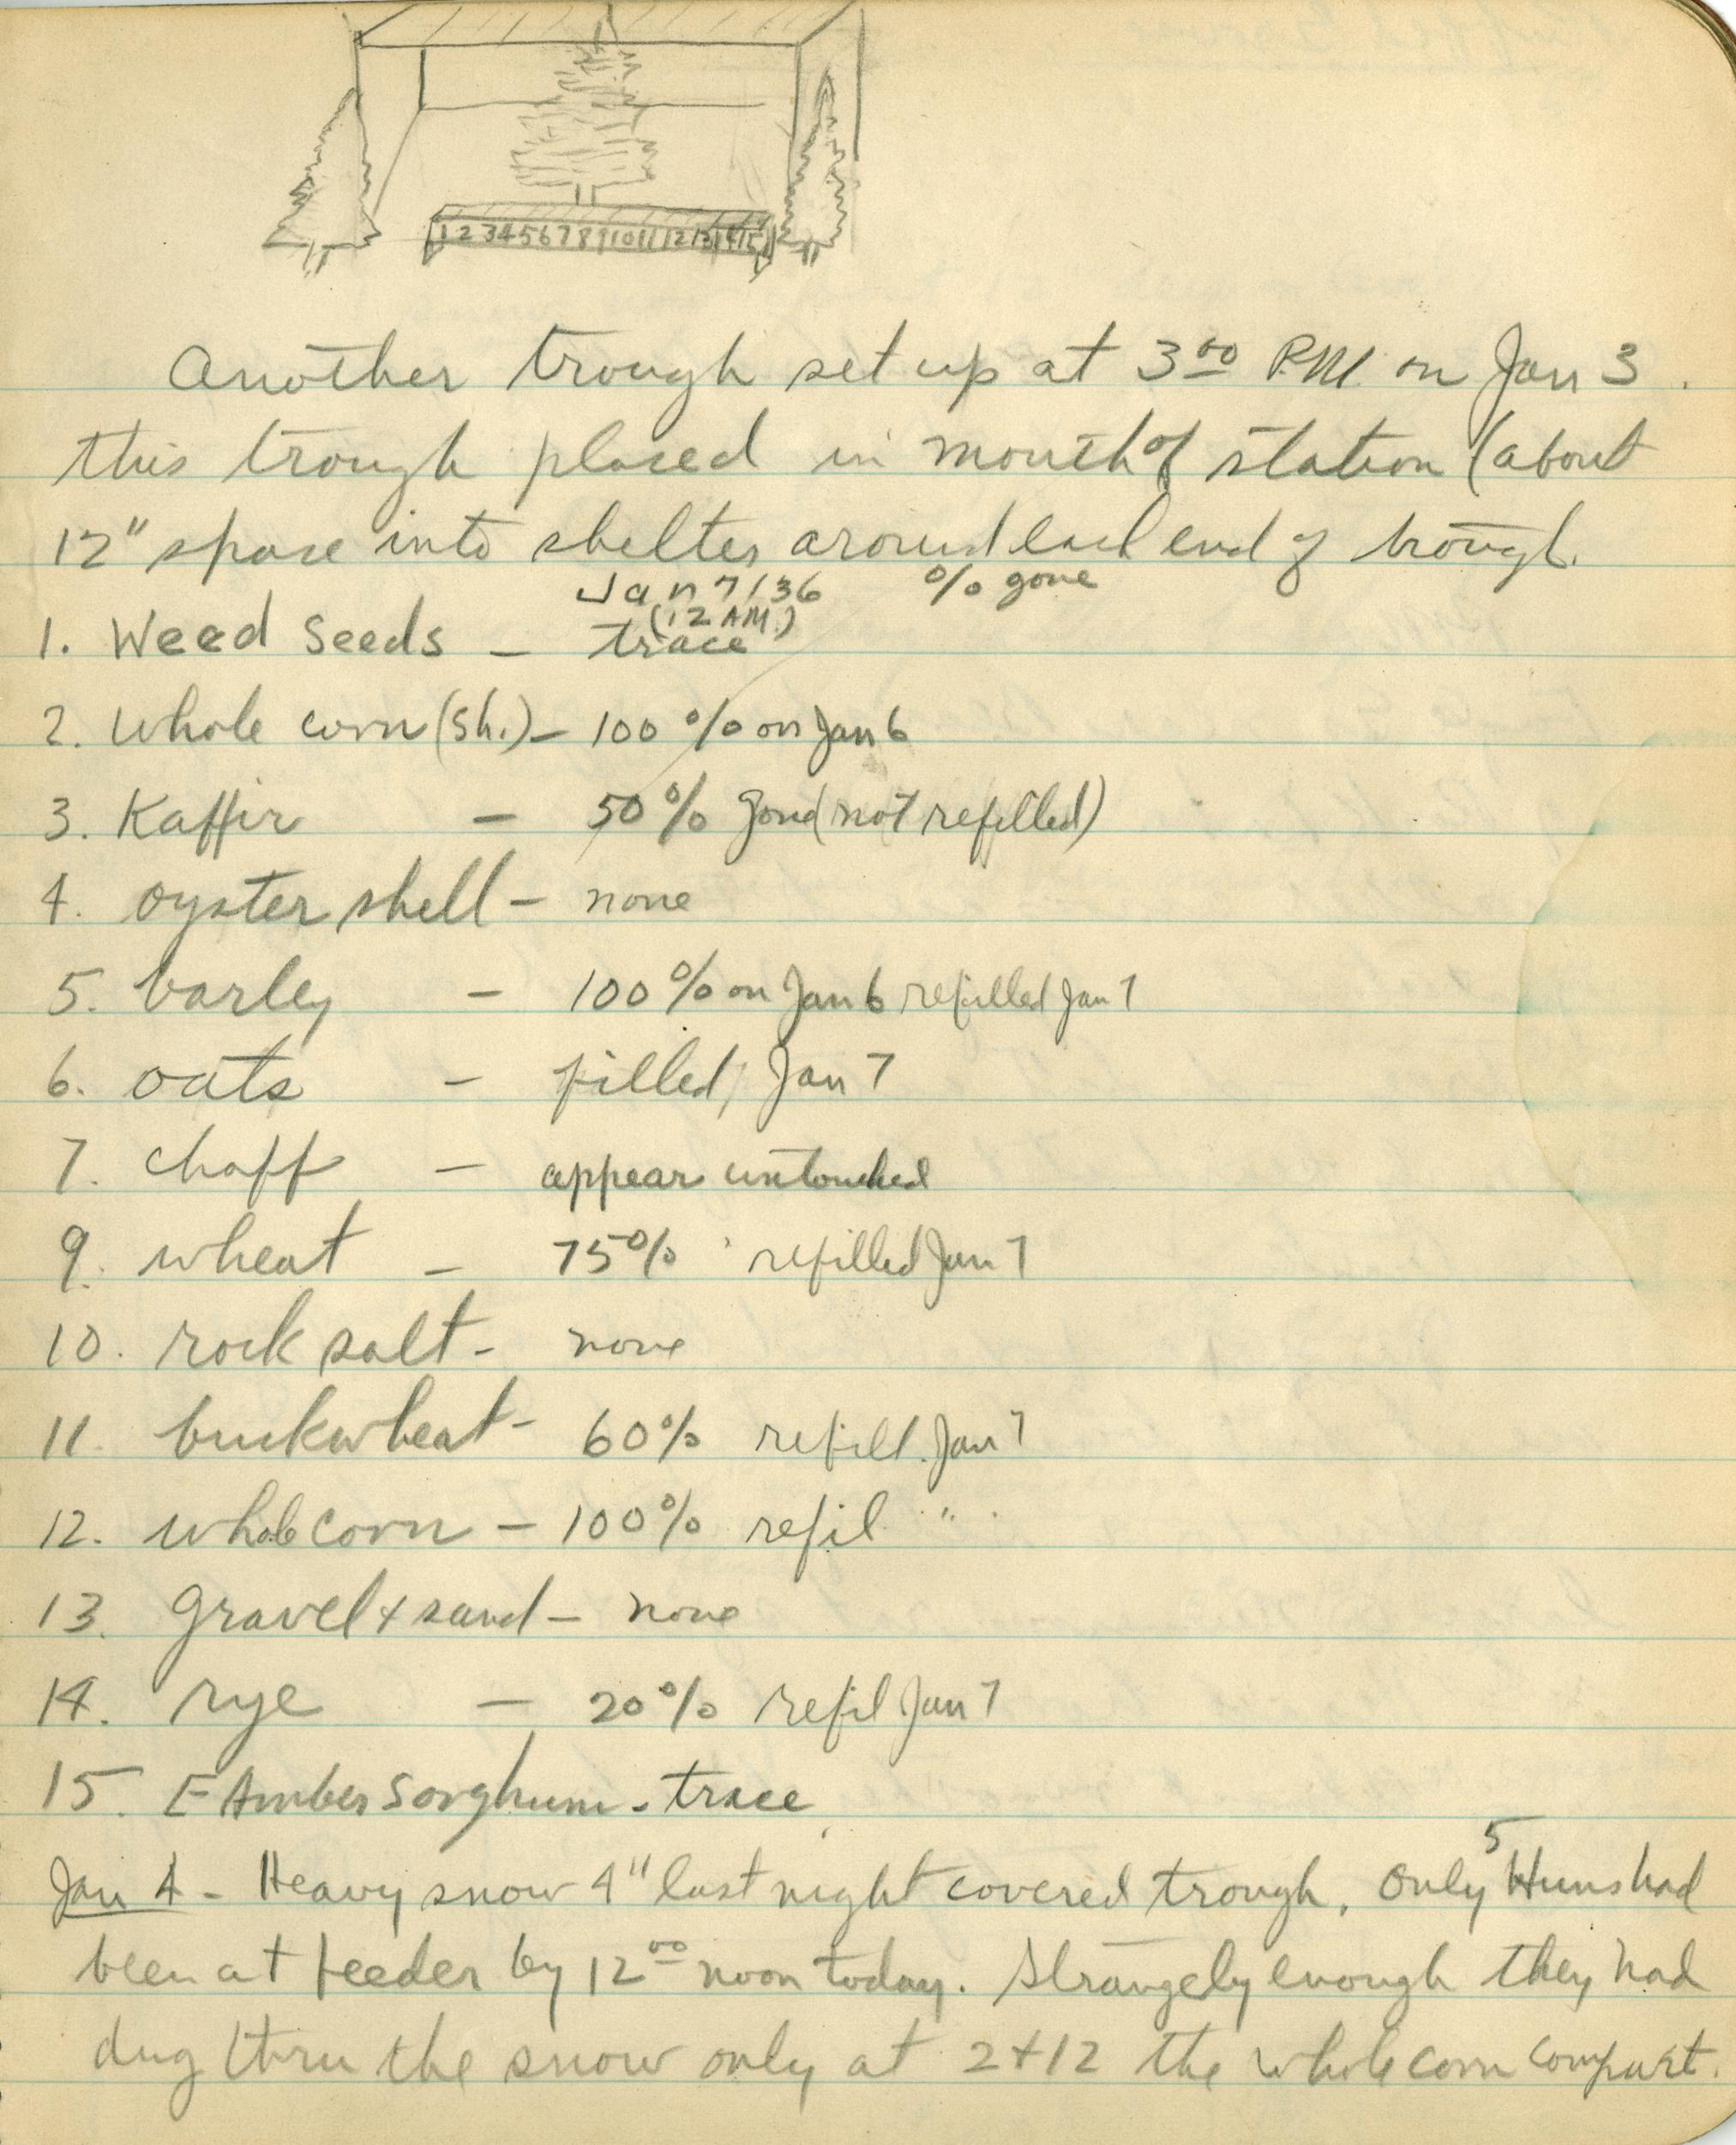 1 2 3 4 5 6 7 8 9 10 11 12 13 14 15
Another trough set up at 3⁰⁰ P.M. on Jan 3.
this trough placed in mouth of station (about
12" space into shelter around each end of trough.
Jan 7/36 % gone
(12 AM.)
1. Weed Seeds - trace
2. Whole corn (sh.) - 100 % on Jan 6
3. Kaffir - 50% gone (not refilled)
4. oyster shell - none
5. barley - 100% on Jan 6 refilled Jan 7
6. oats - filled, Jan 7
7. chaff - appear untouched
9. wheat - 75% refilled Jan 7
10. rock salt - none
11. buckwheat - 60% refill. Jan 7
12. whole corn - 100% refil " .
13. gravel + sand - none
14. rye - 20% refil Jan 7
15. E Amber Sorghum - trace
5
Jan 4 - Heavy snow 4" last night covered trough. Only Huns had
been at feeder by 12⁰⁰ noon today. Strangely enough they had
dug thru the snow only at 2+12 the whole corn compart.